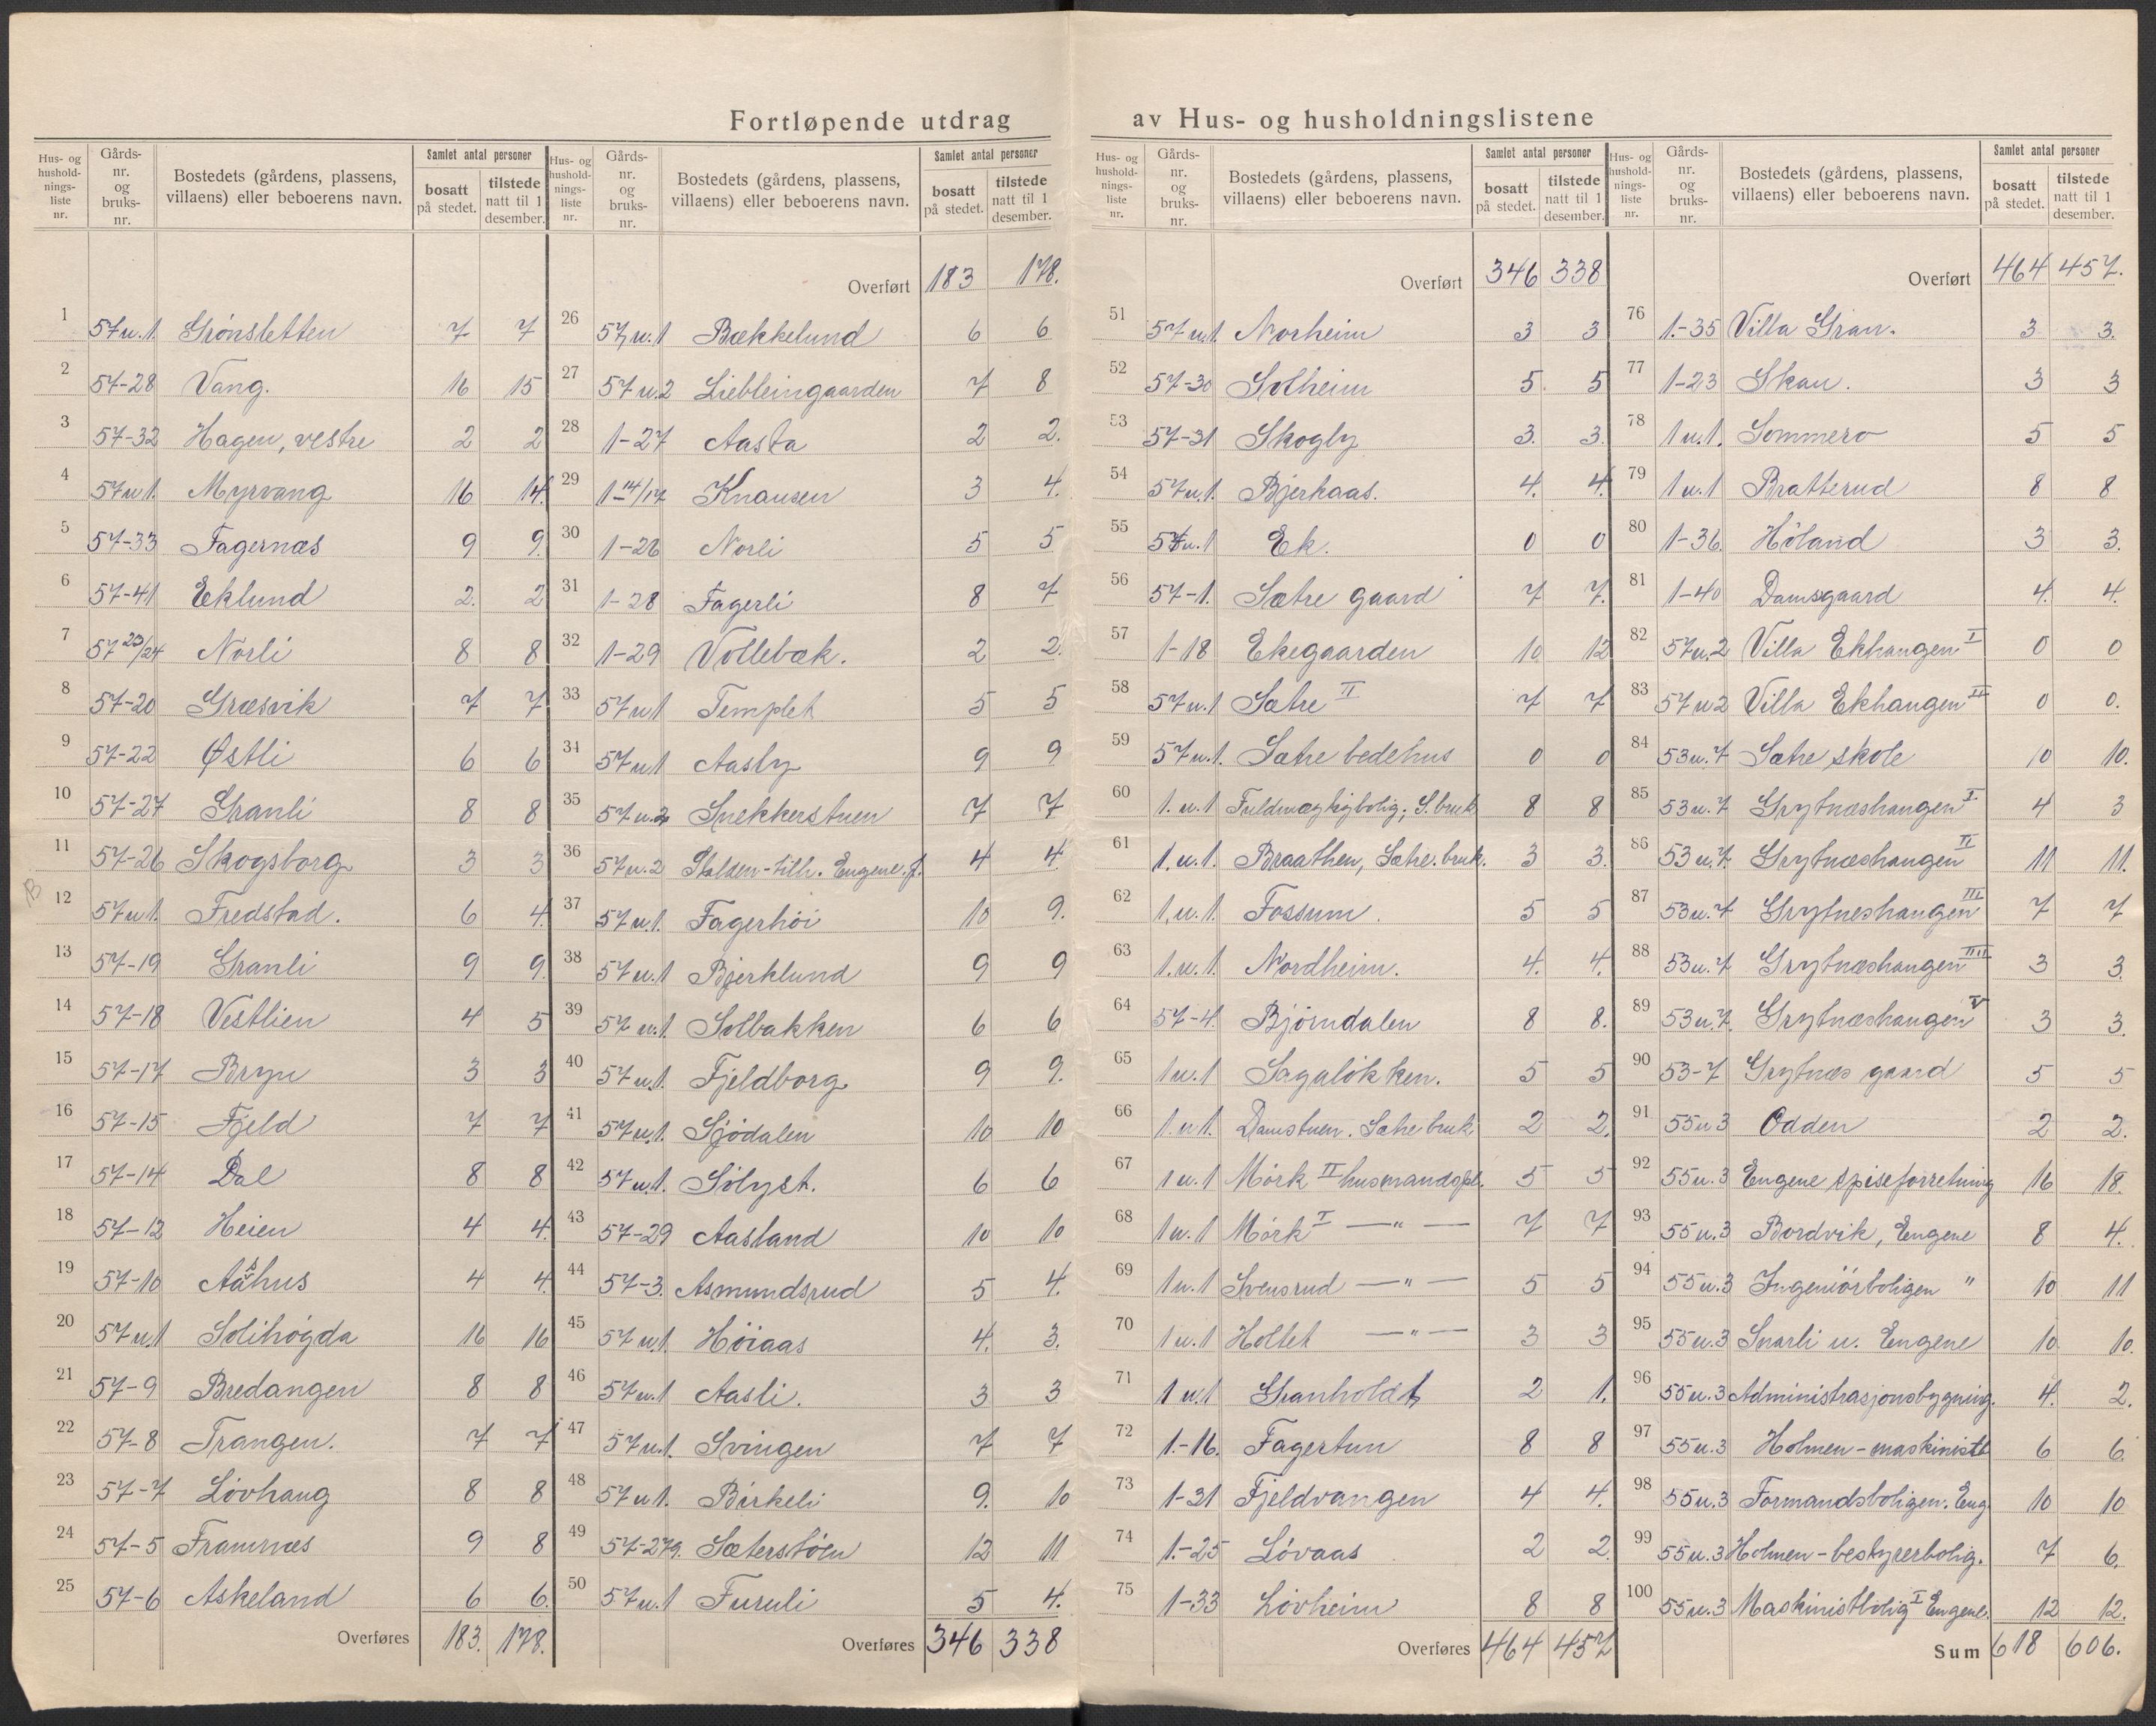 Fortløpende utdrag av Hus- og husholdningslistene
Hus- og hushold-nings-liste nr. | Gårds-nr. og bruks-nr. | Bostedets (gårdens, plassens, villaens) eller beboerens navn. | Samlet antal personer | bosatt på stedet. | tilstede natt til 1 desember.
1 57u.1. Grønsletten 7 7
2 57-28 Vang. 16 15
3 57-32 Hagen, vestre 2 2
4 57u1. Myrvang 16 14.
5 57-33 Fagernæs 9 9.
6 57-41 Eklund 2. 2
7 57 23/24 Norli 8 8
8 57-20 Græsvik 7 7
9 57-22 Østli 6 6
10 57-27 Granli 8 8
11 57-26 Skogsborg 3 3
12 57u1. Fredstad. 6 4.
13 57-19 Granli 9 9.
14 57-18 Vestlien 4 5
15 57-17 Bryn 3 3
16 57-15 Fjeld 7 7
17 57-14 Dal 8 8
18 57-12 Heien 4 4.
19 57-10 Aashus 4 4.
20 57u.1 Solihøgda 16 16
21 57-9 Bredangen 8 8
22 57-8 Trangen. 7 7
23 57-7 Løvhaug 8 8
24 57-5 Framnæs 9 8
25 57-6 Askeland 6 6.
Overføres 183. 178.
Hus- og hushold-nings-liste nr. | Gårds-nr. og bruks-nr. | Bostedets (gårdens, plassens, villaens) eller beboerens navn. | Samlet antal personer | bosatt på stedet. | tilstede natt til 1 desember.
Overført 183 178.
26 57,u.1 Bækkelund 6 6
27 57u.2 Liebleingaarden 7 8
28 1-27 Aasta 2 2.
29 1-14/17 Knausen 3 4.
30 1-26 Norli 5 5
31 1-28 Fagerli 8 7
32 1-29 Vollebæk. 2 2.
33 57u1 Templet 5 5
34 57u1 Aasly 9 9
35 57u.2 Snekkerstuen 7 7
36 57u.2 Stalden-tilh. Engene f. 4 4.
37 57u.1. Fagerhöi 10 9.
38 57u.1 Bjerklund 9 9
39 57u.1. Solbakken 6 6
40 57u.1. Fjeldborg 9 9.
41 57u.1. Sjödalen 10 10
42 57u.1. Sölyst. 6 6
43 57-29 Aasland 10 10
44 57-3. Asmundsrud 5 4.
45 57u.1. Höiaas 4. 3.
46 57u.1 Aasli. 3 3
47 57u.1. Svingen 7 7
48 57u1. Birkeli 9. 10
49 57-279. Sæterstöen 12 11
50 57u.1 Furuli 5 4.
Overføres 346 338
Hus- og hushold-nings-liste nr. | Gårds-nr. og bruks-nr. | Bostedets (gårdens, plassens, villaens) eller beboerens navn. | Samlet antal personer | bosatt på stedet. | tilstede natt til 1 desember.
Overført 346 338
51 57u.1. Norheim 3 3
52 57-30 Solheim 5. 5
53 57-31 Skogly 3. 3.
54 57u.1. Bjerkaas. 4. 4.
55 57u.1 Ek. 0 0
56 57-1. Sætre gaard 7 7.
57 1-18 Ekegaarden 10 12
58 57u.1 Sætre II 7 7
59 57u.1. Sætre bedehus 0 0
60 1.u.1 Fuldmægtigbolig; S. bruk 8 8
61 1.u.1. Braathen, Sætre.bruk. 3 3.
62 1.u.1. Fossum. 5 5
63 1.u.1. Nordheim. 4. 4.
64 57-4. Bjørndalen 8 8.
65 1u.1 Sagaløkken. 5 5
66 1.u1. Damstuen. Sætre bruk 2 2.
67 1u.1 Mørk II husmandspl. 5 5
68 1u.1 Mørk I —"— 7 7
69 1u.1 Svensrud —"— 5 5
70 1u.1 Holtet —"— 3 3
71 1u.1 Granholdt 2 1.
72 1.-16. Fagertun 8 8
73 1-21 Fjeldvangen 4 4.
74 1.-25 Løvaas 2 2.
75 1-33 Løvheim 8 8
Overføres 464 457
Hus- og hushold-nings-liste nr. | Gårds-nr. og bruks-nr. | Bostedets (gårdens, plassens, villaens) eller beboerens navn. | Samlet antal personer | bosatt på stedet. | tilstede natt til 1 desember.
Overført 464 457.
76 1.-35 Villa Gran. 3 3.
77 1-23 Skau. 3 3
78 1u.1. Sommero 5 5
79 1u.1 Bratterud 8 8
80 1-36. Höland 3 3.
81 1-40 Damsgaard 4. 4.
82 57u.2 Villa Ekhaugen I 0 0
83 57u2 Villa Ekhaugen II 0 0.
84 53u.7 Sætre skole 10 10.
85 53u.7 Grytnæshaugen I 4 3
86 53u.7. Grytnæshaugen II 11 11.
87 53u.7 Grytneshaugen III 7 7
88 53u.7 Grytnæshaugen IIII 3 3.
89 53u.7. Grytnæshaugen V 3 3.
90 53-7 Grytnæs gaard 5 5
91 55u3 Odden 2 2.
92 55u.3 Engene spiseforretning 16 18.
93 55u.3 Bordvik, Engene 8 4.
94 55u.3 Ingeniörboligen " 10 11
95 55u.3 Snarli u. Engene 10 10.
96 55u.3 Administrasjonsbygning. 4. 2.
97 55u.3 Holmen-maskinistb 6 6.
98 55u.3 Formandsboligen. Eng. 10 10
99 55u.3 Holmen-bestyrerbolig. 7 6.
100 55u.3 Maskinistbolig I Engene. 12 12.
Sum 618 606.